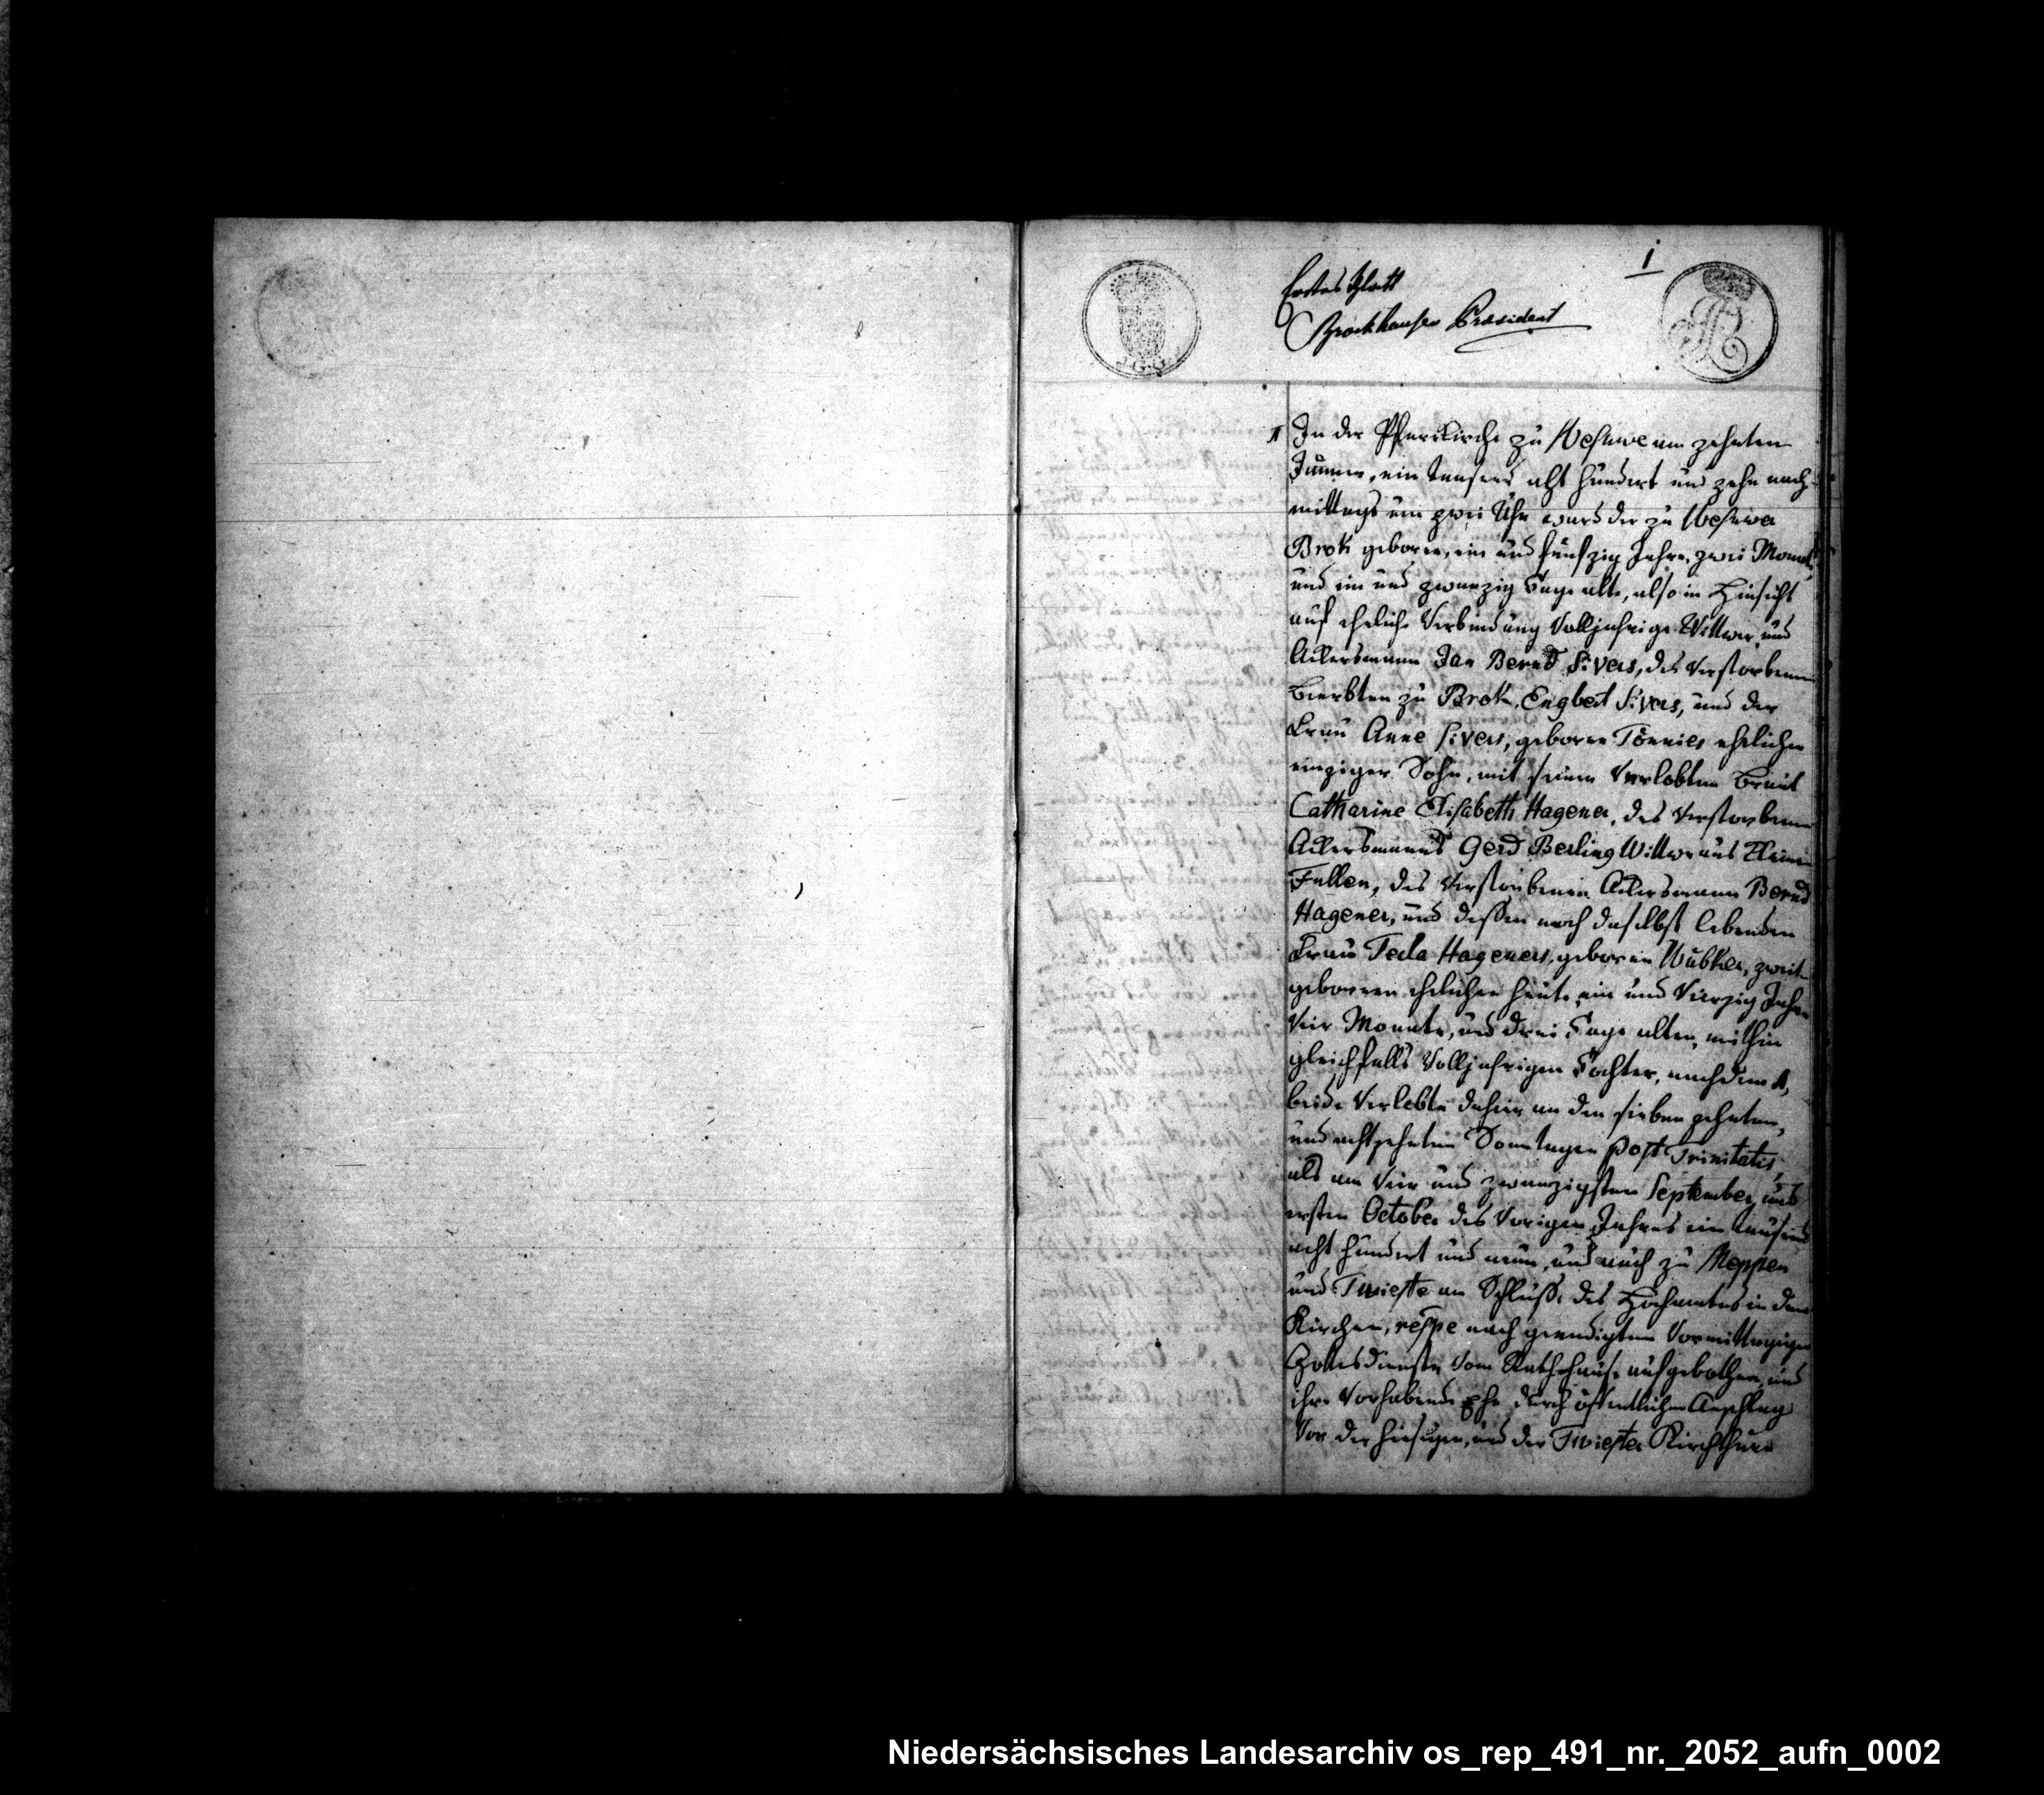 1
Erstes Blatt
Brockhausen Præsident
J.G.G.J.
1 In der Pfarrkirche zu Wesuwe am zehnten
Jänner, ein tausend acht hundert und zehn nach-
mittags um zwei Uhr ward der zu Wesuwer
Brok geboren, ein und fünfzig Jahre, zwei Monate,
und ein und zwanzig Tage alte, also in Hinsicht
auf eheliche Verbindung Volljahrige Wittwer und
Ackersmann Jan Bernd Sivers, des verstorbenen
Beerbten zu Brok, Engbert Sivers, und der
Frau Anne Sivers, geboren Tönnies ehelicher
einziger Sohn, mit seiner Verlobten Braut
Catharine Elisabeth Hagener, des verstorbenen
Ackersmanns Gerd Berling Wittwe aus Kleinen
Fullen, des verstorbenen Ackersmann Bernd
Hagener, und dessen noch daselbst lebenden
Frau Tecla Hageners, geboren Wübker, zweit-
geboren ehelichen heute ein und vierzig Jahre
vier Monate, und drei Tage alten, mithin
gleichfalls Volljahrigen Tochter, nachdem
beide Verlobte dahier an den sieben zehnten,
und achtzehnten Sonntagen post Trinitatis,
als am vier und zwanzigsten September, und
ersten October des vorigen Jahres ein tausend
acht hundert und neun, und auch zu Meppen
und Twieste am Schluße des Hochamtes in den
Kirchen, respe nach geendigtem Vormittagigen
Gottesdienste vom Rathshause aufgebothen, und
ihre vorhabende Ehe durch öffentlichen Anschlag
vor der hiesigen, und der Twiester Kirchthure
Niedersächsisches Landesarchiv os_rep_491_nr._2052_aufn_0002